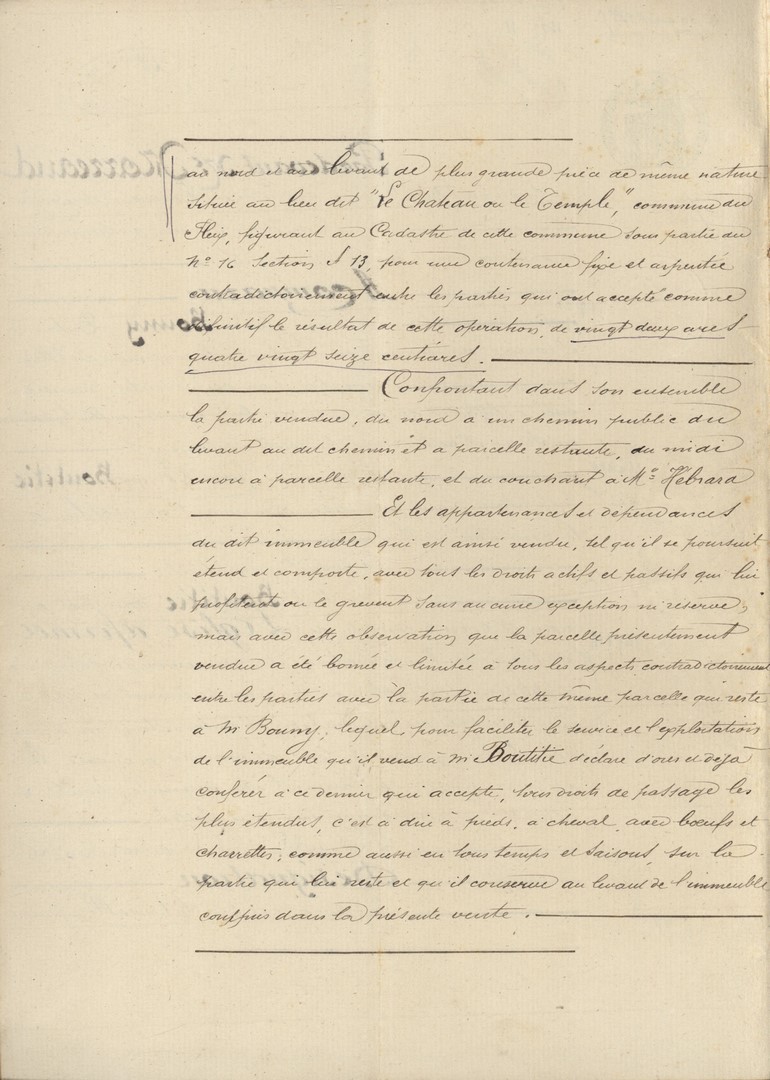 au nord et au levant de plus grande pièce de même nature
située au lieu dit "Le Chateau ou le Temple", commune du
Fleix, figurant au Cadastre de cette commune sous partie du
N° 16 Section A 13, pour une contenance fixe et arpentée
contradictoirement entre les parties qui ont accepté comme
définitif le résultat de cette opération, de vingt deux ares
quatre vingt seize centiares.
Confrontant dans son ensemble
la partie vendue, du nord à un chemin public du
levant au dit chemin et a parcelle restante, du midi
encore à parcelle restante, et du couchant à Me Hébrard
Et les appartenances et dépendances
du dit immeuble qui est ainsi vendu, tel qu'il se poursuit
étend et comporte, avec tous les droits actifs et passifs qui lui
profitent ou le grevent sans aucune exception ni reserve,
mais avec cette observation que la parcelle présentement
vendue a été bornée et limitée à tous les aspects contradictoirement
entre les parties avec la partie de cette même parcelle qui reste
à Mr Bouny, lequel, pour faciliter le service et l'exploitation
de l'immeuble qu'il vend à Mr Boutitie déclare d'ores et déjà
conférer à ce dernier qui accepte, tous droits de passage les
plus étendus, c'est à dire à pieds, à cheval, avec bœufs et
charrettes, comme aussi en tous temps et saisons, sur la
partie qui lui reste et qu'il conserve au levant de l'immeuble
compris dans la présente vente.